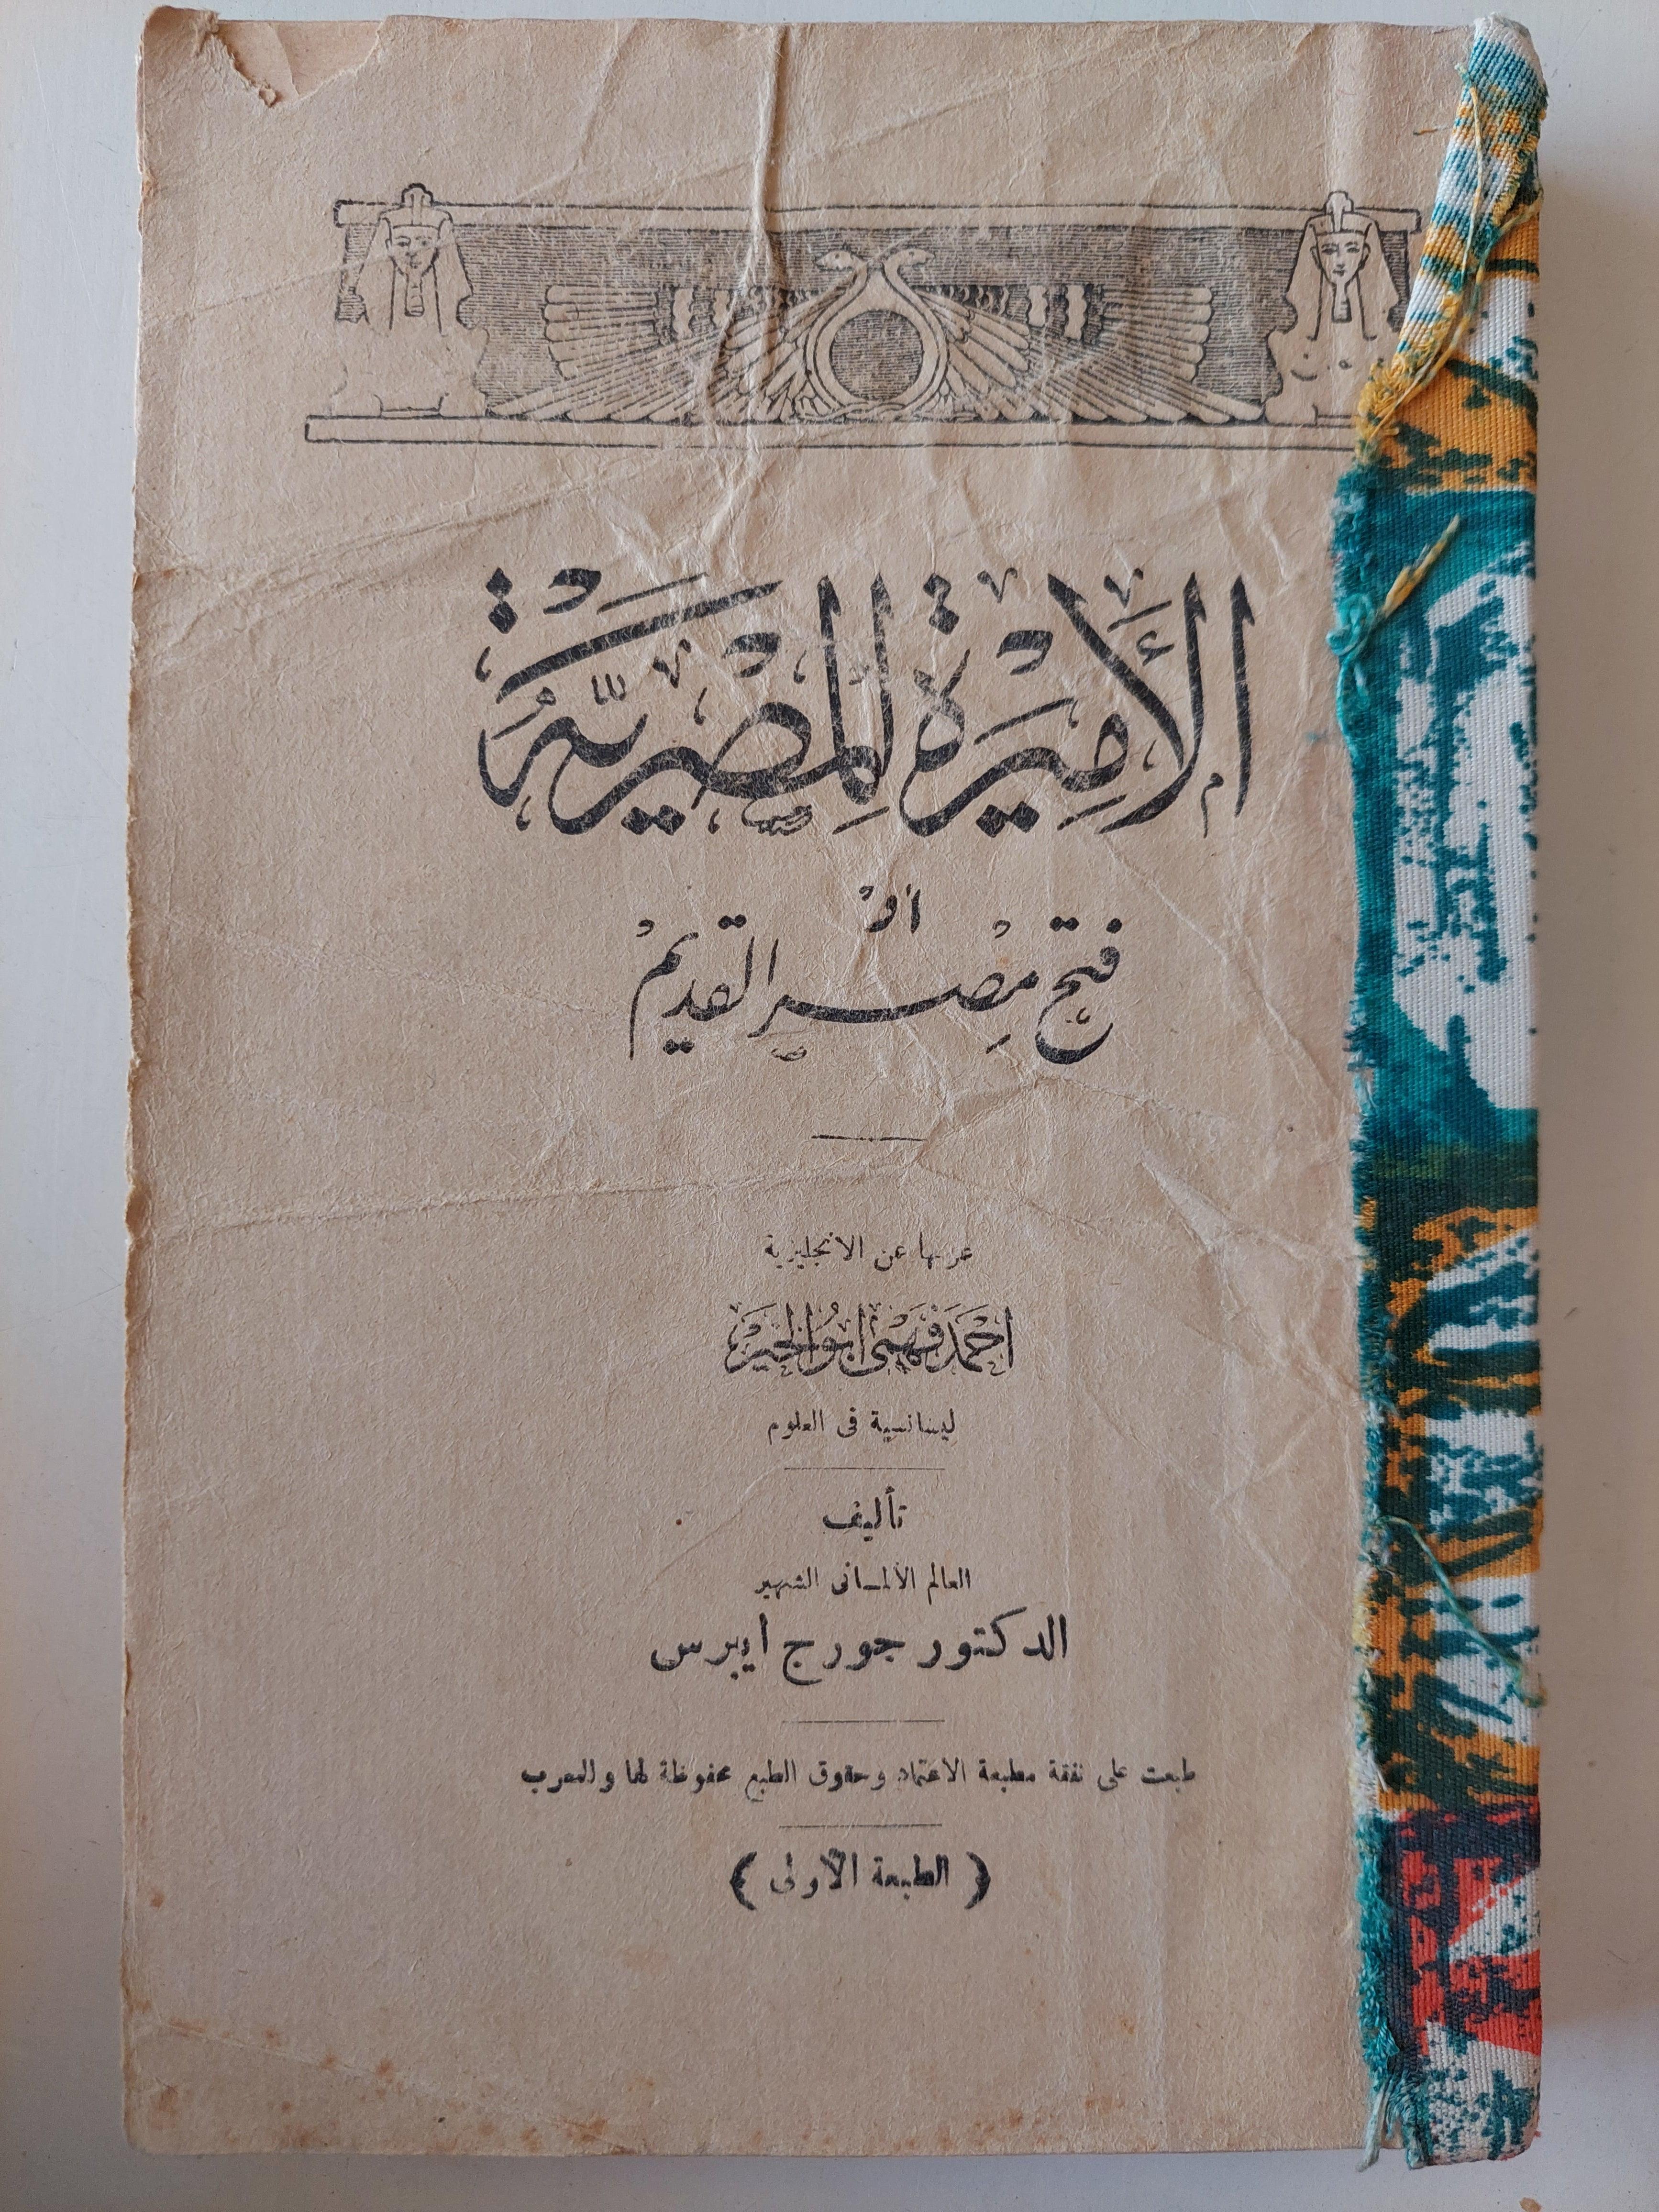 الأميرة المصرية
أو
فتح مصر القديم
عربها عن الانجليزية
احمد فهمى ابو الخير
ليسانسية فى العلوم
تأليف
العالم الألمانى الشهير
الدكتور جورج ايبرس
طبعت على نفقة مطبعة الاعتماد وحقوق الطبع محفوظة لها وللمعرب
( الطبعة الأولى )